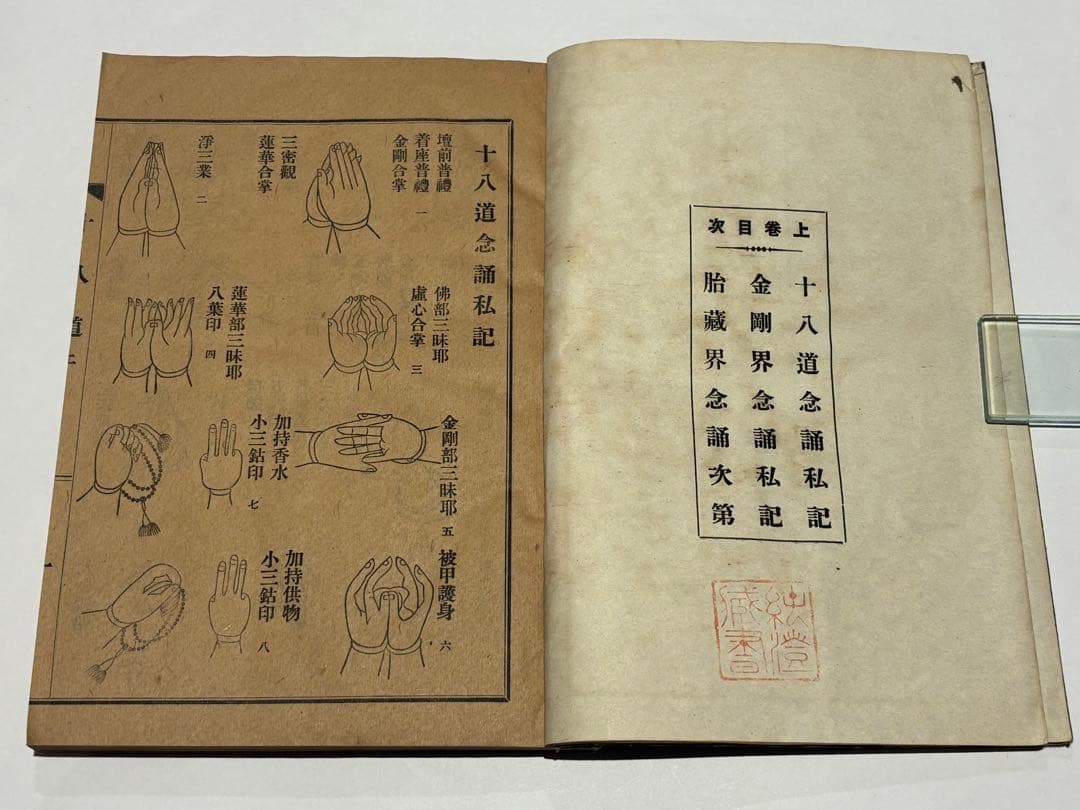 上卷目次
十八道念誦私記
金剛界念誦私記
胎藏界念誦次第
藏書
十八道念誦私記
壇前普禮
着座普禮 一
金剛合掌
三密觀
蓮華合掌
淨三業 二
佛部三昧耶
虛心合掌 三
蓮華部三昧耶
八葉印 四
金剛部三昧耶 五
被甲護身 六
加持香水
小三鈷印 七
加持供物
小三鈷印 八
十八道上
一